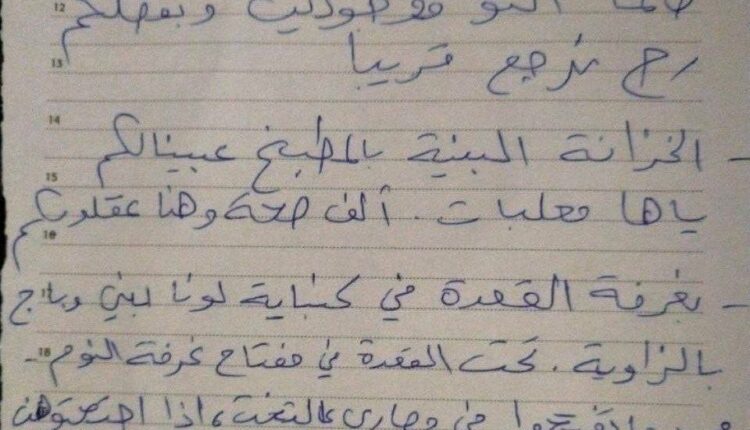 12 طالما انتو موجودين وبفضلكم
13 رح نرجع قريبا
14
- الخزانة البنية بالمطبخ عبينالكم
15 ياها معلبات. ألف صحة وهنا عقلوبكم
16
- بغرفة القعدة في كنباية لونا بني وباج
18 بالزاوية. تحت المقعدة في مفتاح غرفة النوم.
في مصاري عالتخت، اذا احتجتوهن